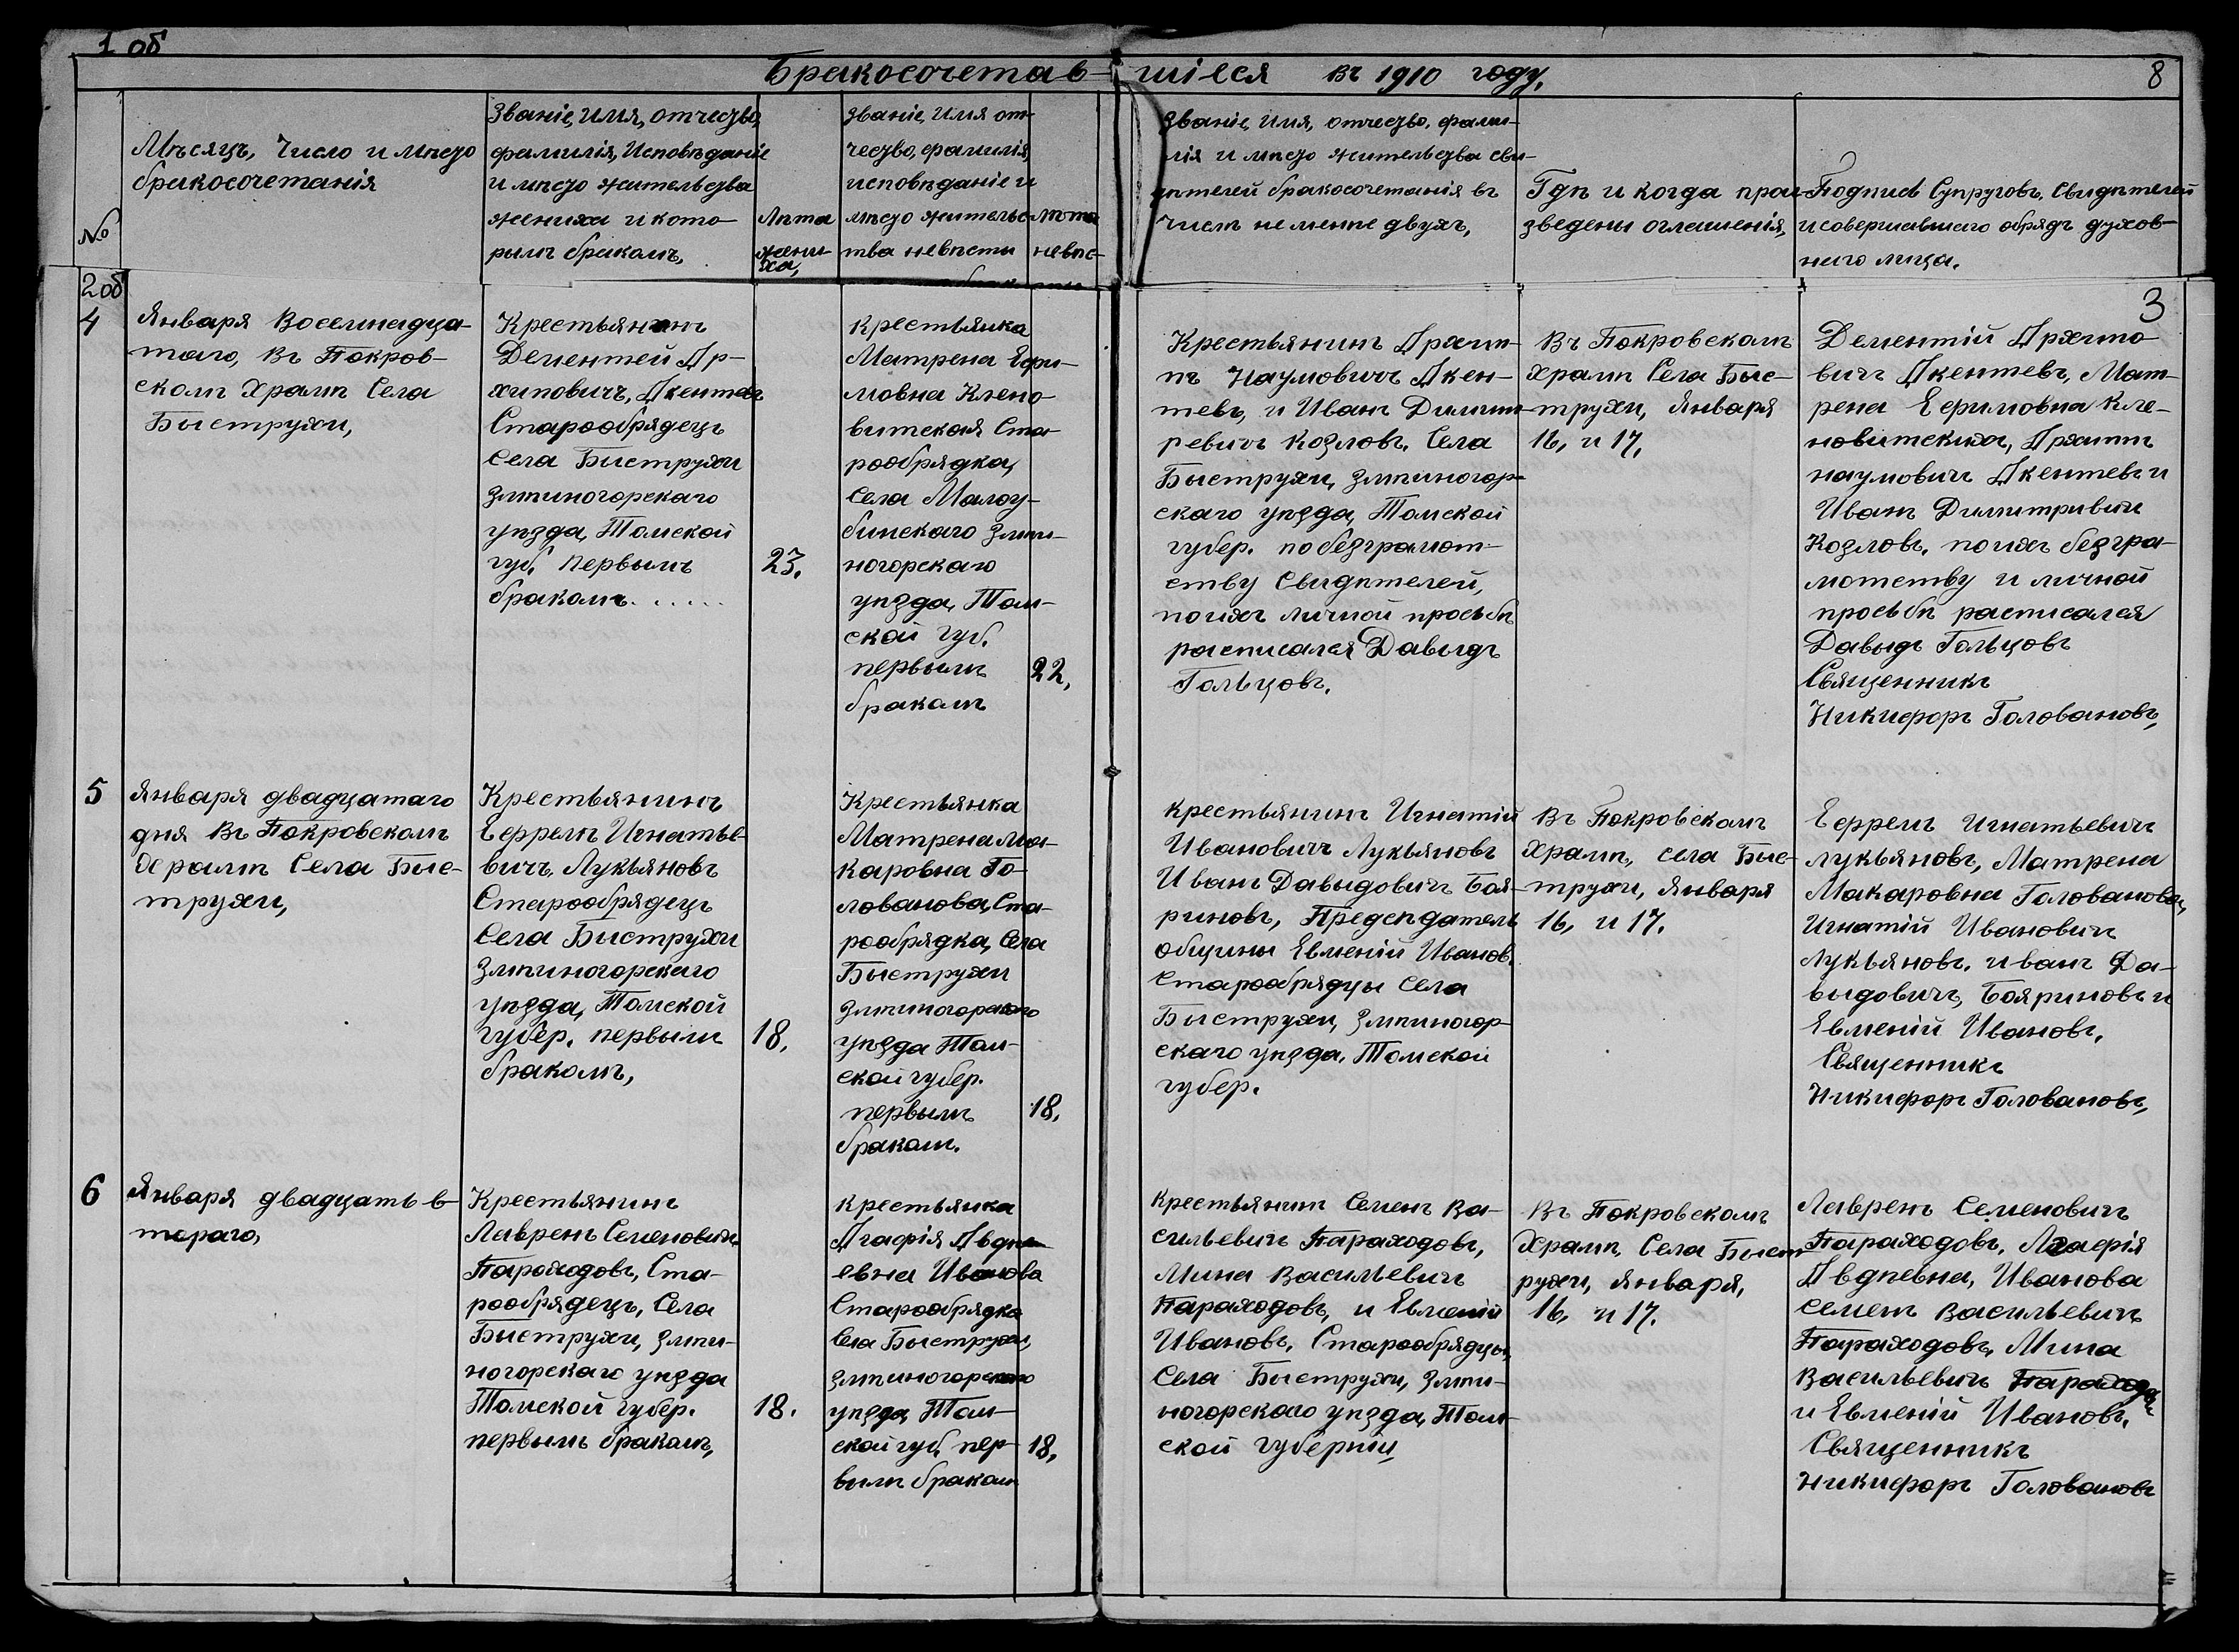 1 об
Бракосочетав-шіеся въ 1910 году.
8
№
Мѣсяцъ, Число и мѣсто
бракосочетанія
Званіе, имя, отчество,
фамилія, Исповѣданіе
и мѣсто жительства
жениха и кото-
рымъ бракомъ,
Лѣта
жени-
ха,
Званіе, Имя от-
чество, фамилія,
исповѣданіе и
мѣсто жительс-
тва невѣсты
лѣта
невѣс-
Званіе, Имя, отчество, фами-
лія и мѣсто жительства сви-
дѣтелей бракосочетанія въ
числѣ не менѣе двухъ,
Гдѣ и когда прои-
зведены оглашенія,
Подписи Супруговъ, Свидѣтелей
и совершавшаго обрядъ духов-
наго лица.
2 об
3
4
Января Восемнадца-
таго, Въ Покров-
скомъ Храмѣ Села
Быструхи,
Крестьянинъ
Дементей Ар-
хиповичъ, Акентевъ
Старообрядецъ
Села Быструхи
Змѣиногорскаго
уѣзда, Томской
губ. первымъ
бракомъ. . . . . .
23.
Крестьянка
Матрена Ефи-
мовна Клено-
витская Ста-
рообрядка,
Села Малоу-
бинскаго Змѣи-
ногорскаго
уѣзда, Том-
ской губ.
первымъ
бракомъ
22,
Крестьянинъ Архип-
пъ Наумовичъ Акен-
тевъ, и Иванъ Димит-
ревичъ Козловъ. Села
Быструхи, Змѣиногор-
скаго уѣзда, Томской
губер. по безграмот-
ству Свидѣтелей,
по ихъ личной просьбѣ
расписался Давыдъ
Гольцовъ.
Въ Покровскомъ
Храмѣ Села Быс-
трухи, Января
16, и 17,
Дементій Архипо-
вичъ Акентевъ, Мат-
рена Ефимовна Кле-
новитская, Архипъ
наумовичъ Акентевъ и
Иванъ Димитривичъ
Козловъ. по ихъ безгра-
мотству и личной
просьбѣ расписался
Давыдъ Гольцовъ
Священникъ
Никифоръ Головановъ,
5
Января двадцатаго
дня Въ Покровскомъ
Храмѣ Села Быс-
трухи,
Крестьянинъ
Ефремъ Игнатье-
вичъ, Лукьяновъ
Старообрядецъ
Села Быструхи
Змѣиногорскаго
уѣзда, Томской
губер. первымъ
бракомъ,
18.
Крестьянка
Матрена Ма-
каровна Го-
лованова, Ста-
рообрядка, Села
Быструхи
Змѣиногорскаго
уѣзда Том-
ской губер.
первымъ
бракомъ.
18,
Крестьянинъ Игнатій
Ивановичъ Лукьяновъ
Иванъ Давыдовичъ Боя-
риновъ, Предсѣдатель
общины Евменій Ивановъ.
Старообрядцы Села
Быструхи, Змѣиногор-
скаго уѣзда, Томской
губер.
Въ Покровскомъ
Храмѣ, села Быс-
трухи, Января
16, и 17.
Ефремъ Игнатьевичъ
лукьяновъ, Матрена
Макаровна Голованова,
Игнатій Ивановичъ
Лукьяновъ. иванъ Да-
выдовичъ, Бояриновъ и
Евменій Ивановъ,
Священникъ
Никифоръ Головановъ,
6
Января двадцать в-
тораго,
Крестьянинъ
Лаврень Семеновичъ
Параходовъ, Ста-
рообрядецъ, Села
Быструхи, Змѣи-
ногорскаго уѣзда
Томской губер.
первымъ бракомъ,
18.
Крестьянка
Агафія Авдѣ-
евна Иванова
Старообрядка
Села Быструхи,
Змѣиногорскаго
уѣзда, Том-
ской губ, пер-
вымъ бракомъ
18,
Крестьянинъ Семенъ Ва-
сильевичъ Параходовъ,
Мина Васильевичъ
Параходовъ, и Евменій
Ивановъ, Старообрядцы,
Села Быструхи, Змѣи-
ногорскаго уѣзда, Том-
ской губерніи,
Въ Покровскомъ
Храмѣ, Села Быст-
рухи, Января,
16, и 17.
Лаврень Семеновичъ
Параходовъ, Агафія
Авдѣевна, Иванова
Семенъ Васильевичъ
Параходовъ, Мина
Васильевичъ Параходовъ
и Евменій Ивановъ.
Священникъ
Никифоръ Головановъ